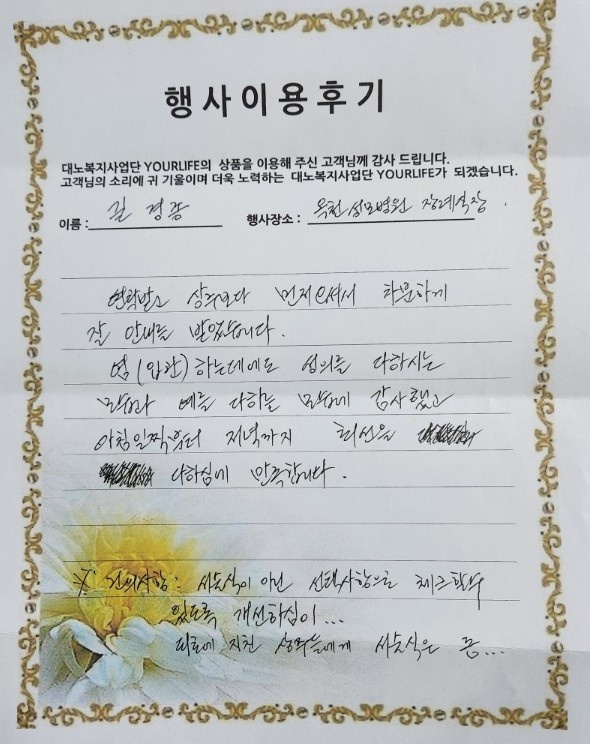 행사이용후기
대노복지사업단 YOURLIFE의 상품을 이용해 주신 고객님께 감사 드립니다.
고객님의 소리에 귀 기울이며 더욱 노력하는 대노복지사업단 YOURLIFE가 되겠습니다.
이름 : 길경증 행사장소 : 옥천성모병원 장례식장.
연락받고 상주보다 먼저 오셔서 차분하게
잘 안내를 받았습니다.
염(입관)하는데에도 성의를 다하시는
모습과 예를 다하는 모습에 감사했고
아침일찍부터 저녁까지 최선을
다하심에 만족합니다.
※ 건의사항: 서술식이 아닌 선택사항으로 체크할수
있도록 개선하심이...
피로에 지친 상주들에게 서술식은 좀...